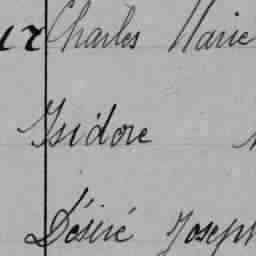 Charles Marie
Isidore
Désiré Joseph